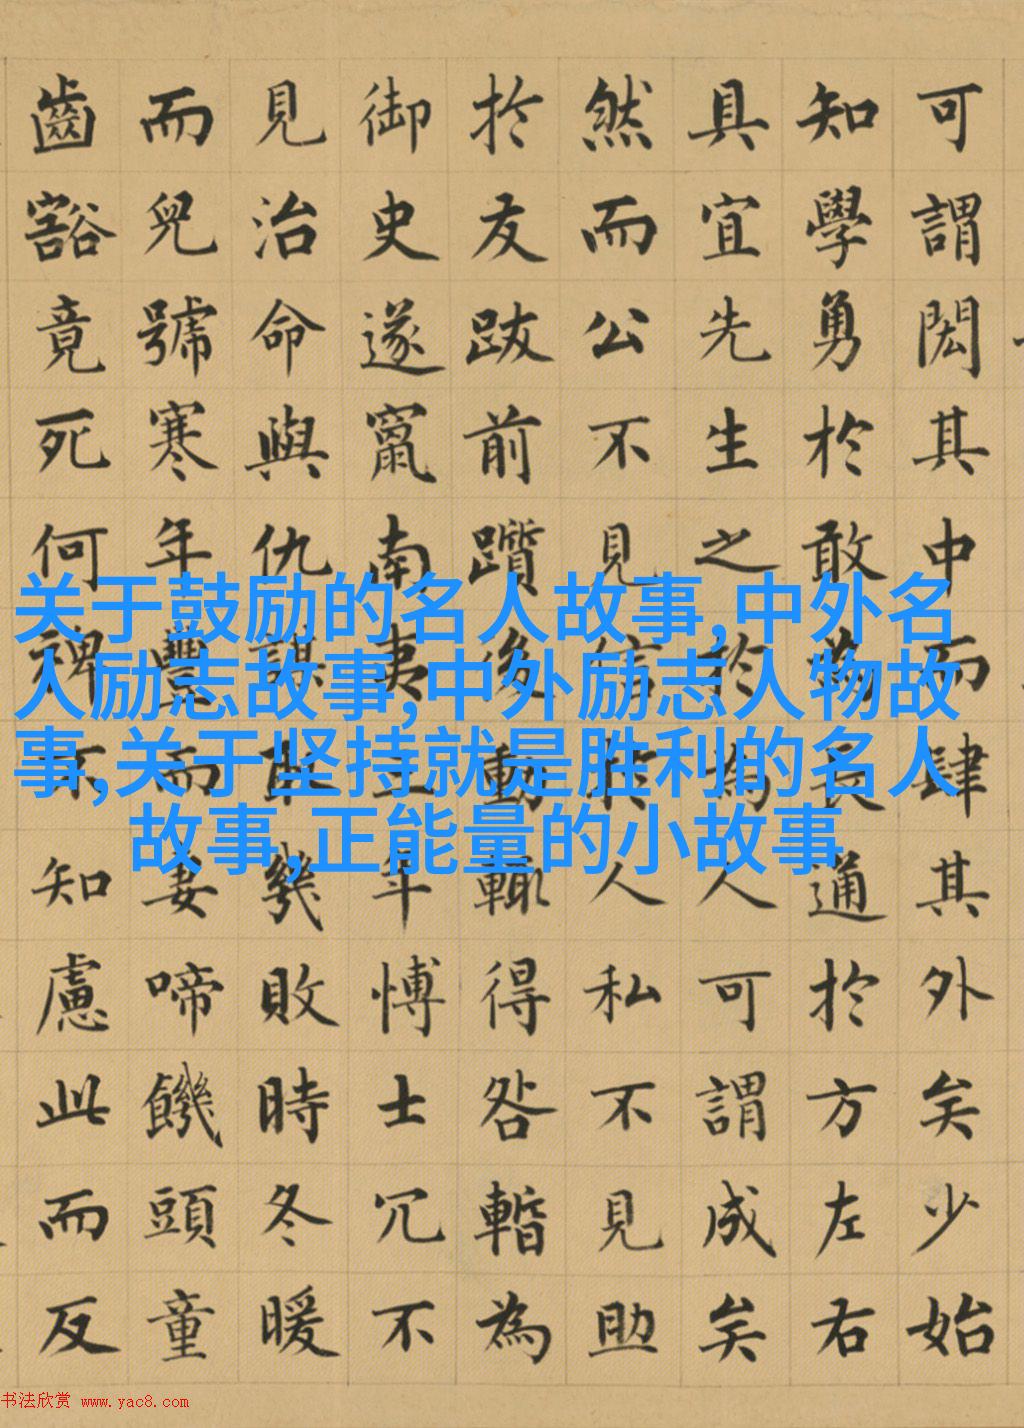 可謂閎其中而肆其外矣少始
知學勇於敢為長通於方左右
具宜先生之於為人可謂成矣
然而公不見信於人私不見助
於友跋前躓後動輒得咎暫為
御史遂竄南夷三年愽士冗不
見治命與仇謀取敗幾時冬暖
而兒號寒年豐而妻啼饑頭童
齒豁竟死何裨不知慮此而反
关于鼓励的名人故事,中外名
人励志故事,中外励志人物故
事,关于坚持就是胜利的名人
故事,正能量的小故事
书法欣赏 www.yac8.com